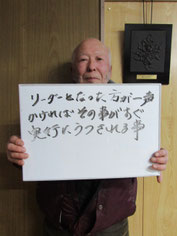 リーダーとなった方が一声
かければその事がすぐ
実行にうつされる事